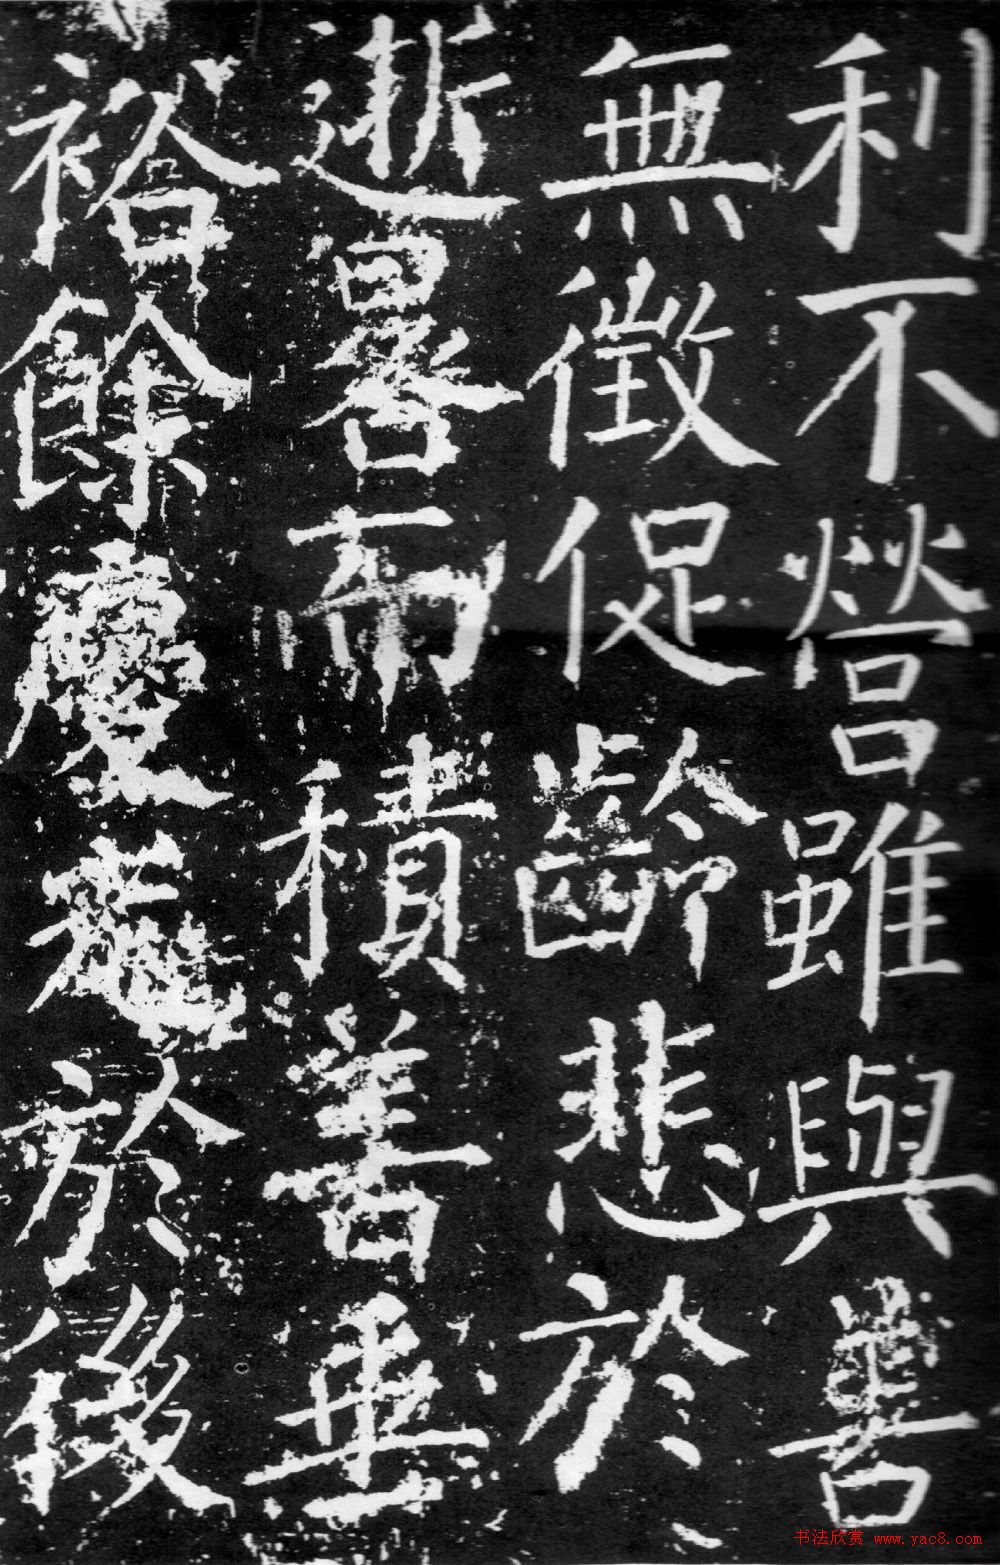 利不營雖與善
無徵促齡悲於
逝晷而積善垂
裕餘慶光於後
书法欣赏 www.yac8.com